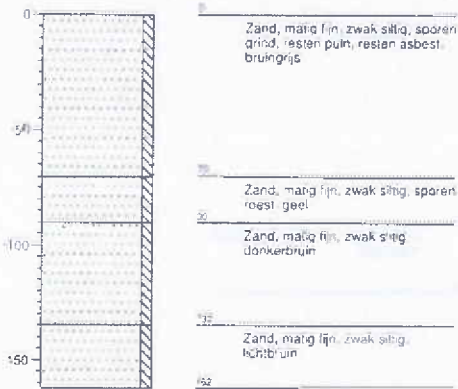 0
Zand, matig fijn, zwak siltig, sporen
grind, resten puin, resten asbest,
bruingrijs
-50
70
Zand, matig fijn, zwak siltig, sporen
roest, geel
90
-100
Zand, matig fijn, zwak siltig,
donkerbruin
Zand, matig fijn, zwak siltig,
lichtbruin
-150
162